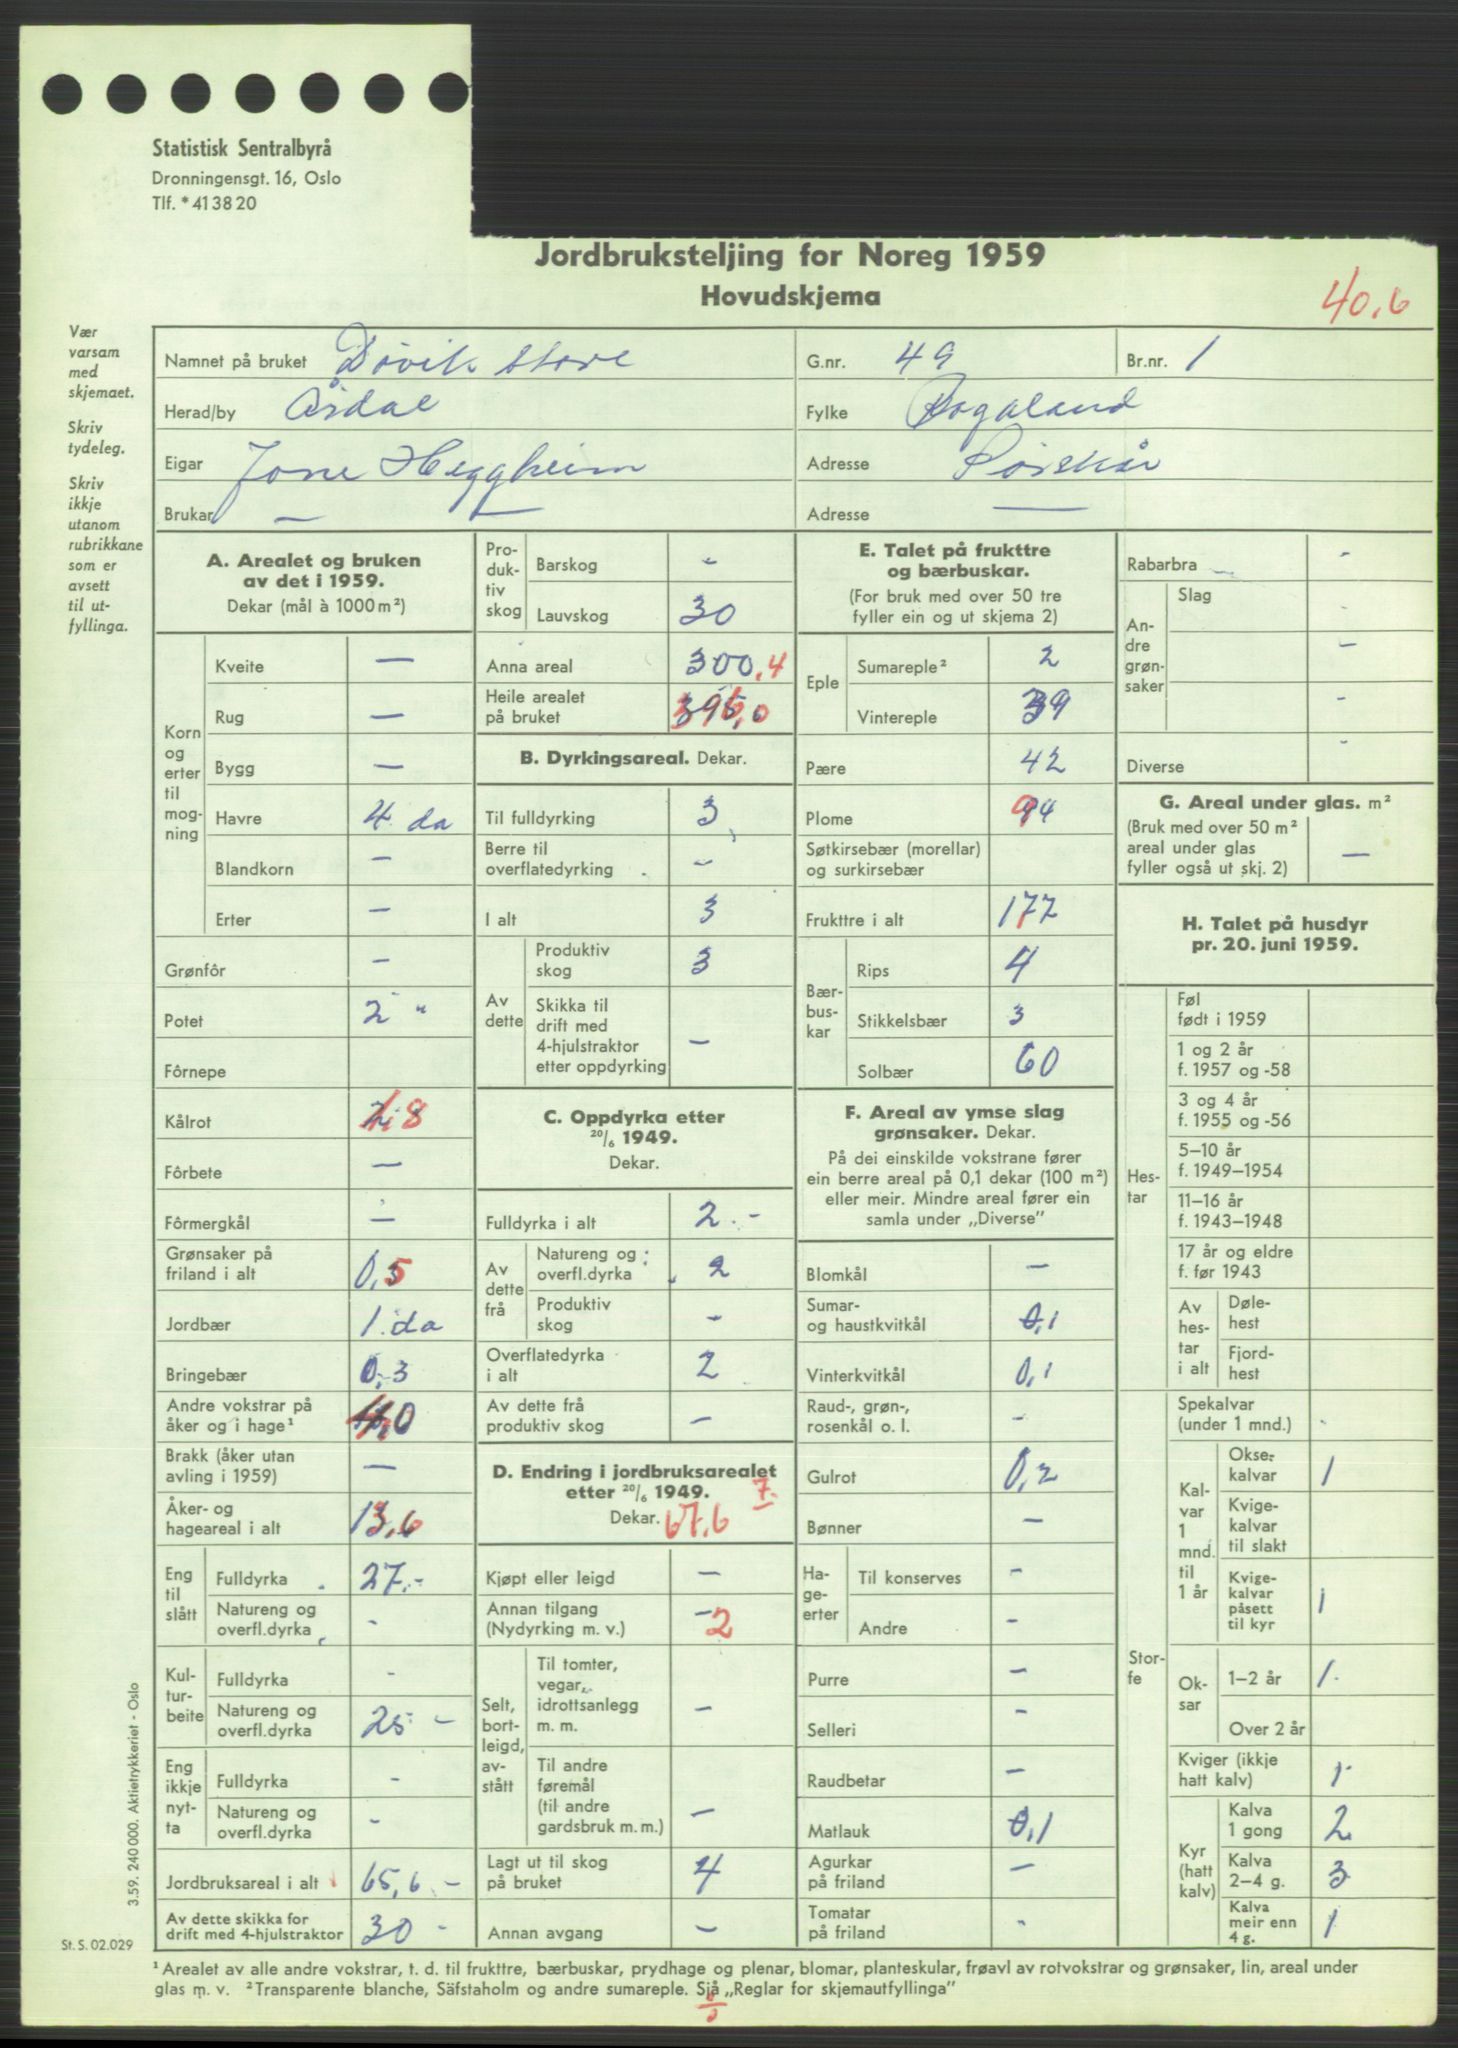 Statistisk Sentralbyrå
Dronningensgt. 16, Oslo
Tlf. * 41 38 20
Jordbruksteljing for Noreg 1959
Hovudskjema
40,6
Vær
varsam
med
skjemaet.
Skriv
tydeleg.
Skriv
ikkje
utanom
rubrikkane
som er
avsett
til ut-
fyllinga.
Namnet på bruket Døvik store G.nr. 49 Br.nr. 1
Herad/by Årdal Fylke Rogaland
Eigar Jone Heggheim Adresse
Brukar — — Adresse —
A. Arealet og bruken
av det i 1959.
Dekar (mål à 1000 m²)
Korn og erter til mog-ning
Kveite —
Rug —
Bygg —
Havre 4 da
Blandkorn —
Erter —
Grønfôr —
Potet 2 "
Fôrnepe
Kålrot 1,8
Fôrbete —
Fôrmergkål —
Grønsaker på
friland i alt 0,5
Jordbær 1 da
Bringebær 0,3
Andre vokstrar på
åker og i hage¹ 4,0
Brakk (åker utan
avling i 1959) —
Åker- og
hageareal i alt 13,6
Eng til slått
Fulldyrka 27,-
Natureng og
overfl.dyrka -
Kul-tur-beite
Fulldyrka -
Natureng og
overfl.dyrka 25 -
Eng ikkje nyt-ta
Fulldyrka -
Natureng og
overfl.dyrka -
Jordbruksareal i alt 65,6 -
Av dette skikka for
drift med 4-hjulstraktor 30 -
Pro-duk-tiv skog
Barskog -
Lauvskog 30
Anna areal 300,4
Heile arealet
på bruket 396,0
B. Dyrkingsareal. Dekar.
Til fulldyrking 3
Berre til
overflatedyrking -
I alt 3
Av dette
Produktiv
skog 3
Skikka til
drift med
4-hjulstraktor
etter oppdyrking —
C. Oppdyrka etter
20/6 1949.
Dekar.
Fulldyrka i alt 2.-
Av dette frå
Natureng og
overfl.dyrka 2
Produktiv
skog -
Overflatedyrka
i alt 2
Av dette frå
produktiv skog —
D. Endring i jordbruksarealet
etter 20/6 1949. 7.
Dekar. 67,6
Kjøpt eller leigd —
Annan tilgang
(Nydyrking m. v.) 2
Selt, bort-leigd, av-stått
Til tomter,
vegar,
idrottsanlegg
m. m. —
Til andre
føremål
(til andre
gardsbruk m. m.) —
Lagt ut til skog
på bruket 4
Annan avgang —
E. Talet på frukttre
og bærbuskar.
(For bruk med over 50 tre
fyller ein og ut skjema 2)
Eple
Sumareple² 2
Vintereple 39
Pære 42
Plome 94
Søtkirsebær (morellar)
og surkirsebær
Frukttre i alt 177
Bær-bus-kar
Rips 4
Stikkelsbær 3
Solbær 60
F. Areal av ymse slag
grønsaker. Dekar.
På dei einskilde vokstrane fører
ein berre areal på 0,1 dekar (100 m²)
eller meir. Mindre areal fører ein
samla under „Diverse”
Blomkål —
Sumar-
og haustkvitkål 0,1
Vinterkvitkål 0,1
Raud-, grøn-,
rosenkål o. l. -
Gulrot 0,2
Bønner —
Ha-ge-erter
Til konserves -
Andre -
Purre —
Selleri -
Raudbetar —
Matlauk 0,1
Agurkar
på friland —
Tomatar
på friland -
Rabarbra -
An-dre grøn-saker
Slag
-
—
-
Diverse -
G. Areal under glas. m²
(Bruk med over 50 m²
areal under glas
fyller også ut skj. 2) —
H. Talet på husdyr
pr. 20. juni 1959.
Hes-tar
Føl
født i 1959
1 og 2 år
f. 1957 og -58
3 og 4 år
f. 1955 og -56
5–10 år
f. 1949–1954
11–16 år
f. 1943–1948
17 år og eldre
f. før 1943
Av hes-tar i alt
Døle-
hest
Fjord-
hest
Stor-fe
Spekalvar
(under 1 mnd.)
Kal-var 1 mnd. til 1 år
Okse-
kalvar 1
Kvige-
kalvar
til slakt
Kvige-
kalvar
påsett
til kyr 1
Ok-sar
1–2 år 1
Over 2 år
Kviger (ikkje
hatt kalv) 1
Kyr (hatt kalv)
Kalva
1 gong 2
Kalva
2–4 g. 3
Kalva
meir enn
4 g. 1
3.59. 240 000. Aktietrykkeriet - Oslo
St. S. 02.029
¹ Arealet av alle andre vokstrar, t. d. til frukttre, bærbuskar, prydhage og plenar, blomar, planteskular, frøavl av rotvokstrar og grønsaker, lin, areal under
glas m. v. ² Transparente blanche, Säfstaholm og andre sumareple. Sjå „Reglar for skjemautfyllinga”